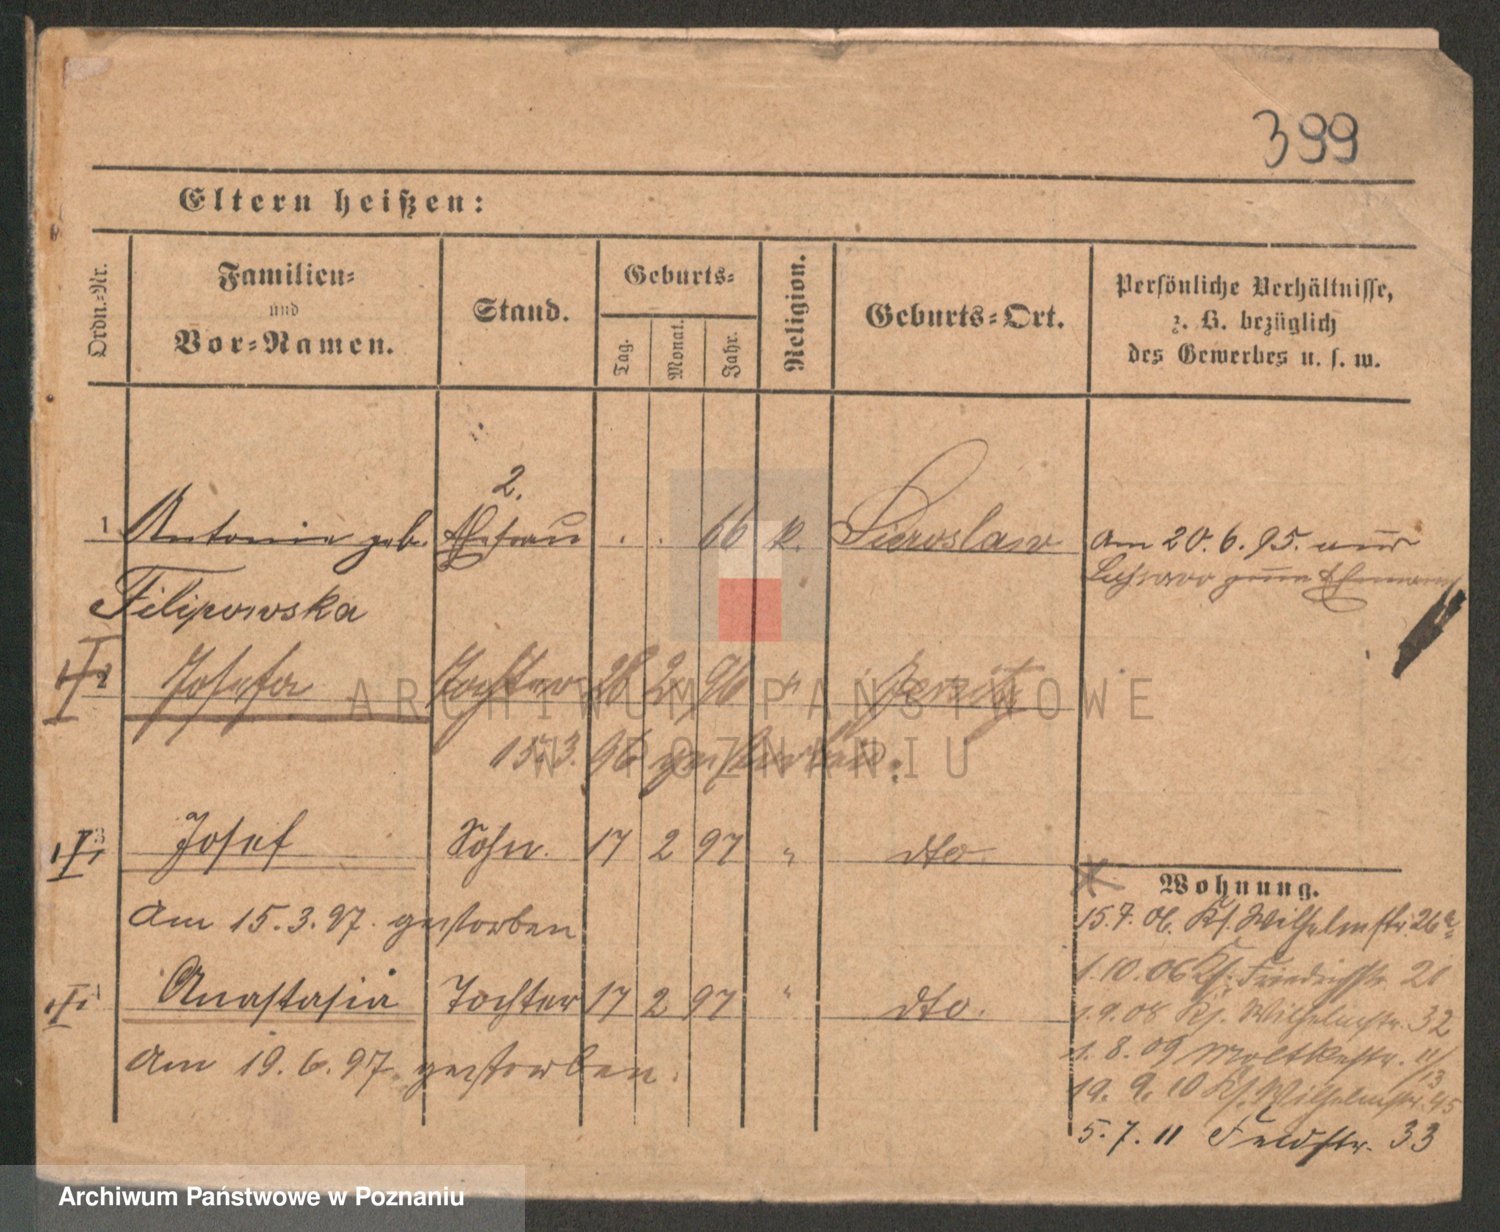 399
Eltern heißen:
Ordn.-Nr.
Familien-
und
Vor-Namen.
Stand.
Geburts-
Tag.
Monat.
Jahr.
Religion.
Geburts-Ort.
Persönliche Verhältnisse,
z. B. bezüglich
des Gewerbes u. s. w.
2.
1 Antonie geb. Ehefrau . . 66 k. Sieroslaw am 20. 6. 95. aus
Filipowska
zum Ehemann
2 Josefa Tochter 28 2 96 " Jersitz
15.3. 96 gestorben.
3 Josef Sohn. 17 2 97 " dto.
am 15. 3. 97. gestorben
Anastasia Tochter 17 2 97 " dto.
am 19. 6. 97. gestorben.
Wohnung.
15.7. 06. Ks. Wilhelmstr. 26a
1. 10. 06 Ks. Friedrichstr. 21
1. 9. 08 Ks. Wilhelmstr. 32
1. 8. 09 Moltkestr. 11/
13
19. 9. 10 Ks. Wilhelmstr. 45
5. 7. 11 Feldstr. 33
ARCHIWUM PAŃSTWOWE
W POZNANIU
Archiwum Państwowe w Poznaniu